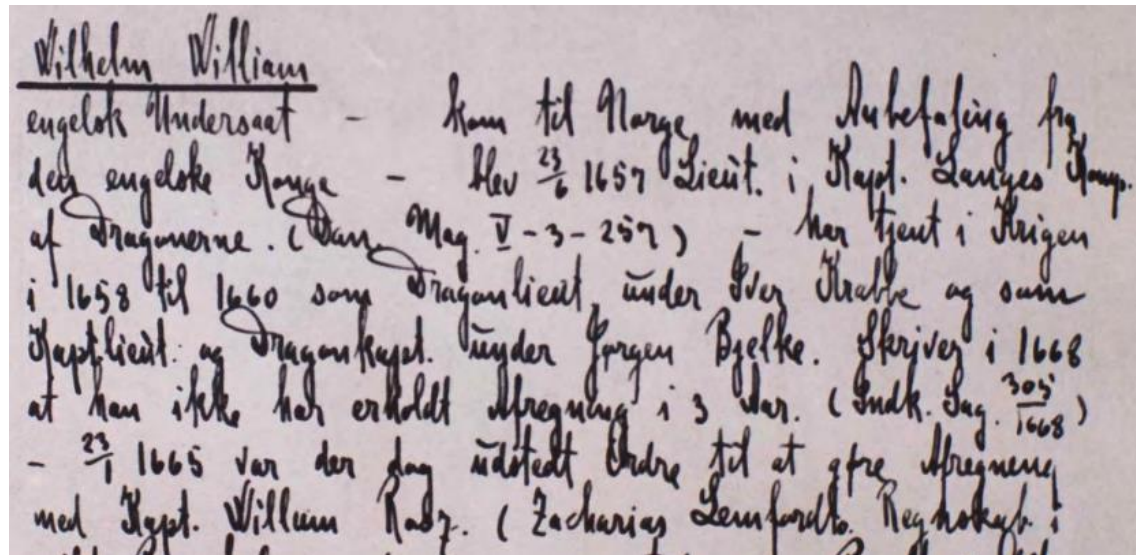 Wilhelm William
engelsk Undersaat - kom til Norge med Anbefaling fra
den engelske Konge - blev 23/6 1657 Lieut. i Kapt. Langes Komp.
af Dragonerne. (Dan. Mag. V-3-257) - har tjent i Krigen
i 1658 til 1660 som Dragonlieut. under Iver Krabbe og som
Kapt.lieut. og Dragonkapt. under Jørgen Bjelke. Skriver i 1668
at han ikke har erholdt Afregning i 3 Aar. (Indk. Sag. 305/1668)
- 23/1 1665 var der dog udstedt Ordre til at gøre Afregning
med Kapt. Willum (Zacharias Regnskab i